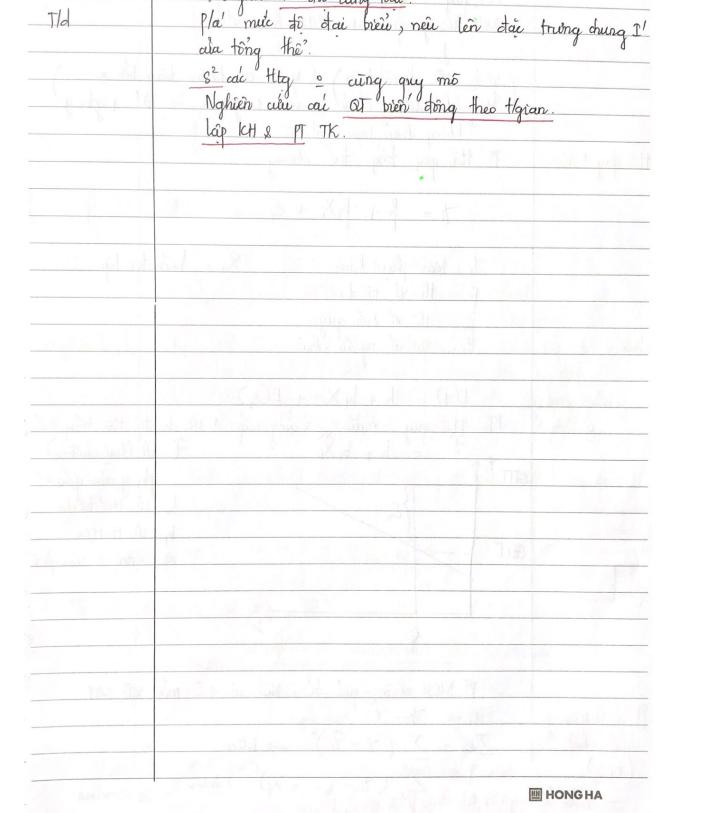 T/d
P/á mức độ đại biểu, nêu lên đặc trưng chung I'
của tổng thể.
S² các Htg ο cùng quy mô
Nghiên cứu các QT biến động theo t/gian.
lập KH & PT TK.
HONG HA